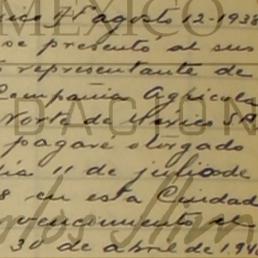 MEXICO
xico 7º agosto 12-1938
se presento al sus
representante de
Compañia Agricola
Norte de Mexico SA
DACION
pagaré otorgado
ia 11 de julio de
8 en esta Ciudad
vencimiento el
30 de abril de 194